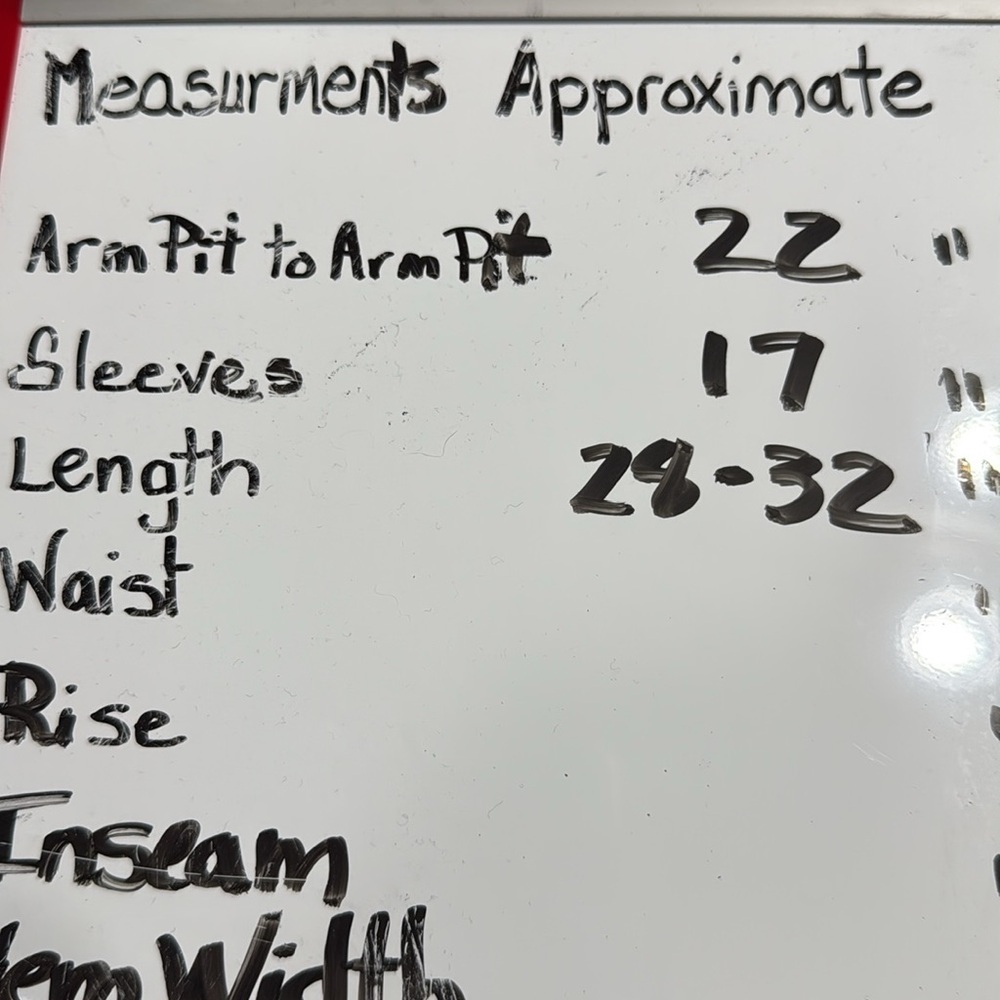 Measurments Approximate
Arm Pit to Arm Pit 22 "
Sleeves 17 "
Length 28-32 "
Waist "
Rise
Inseam
Width